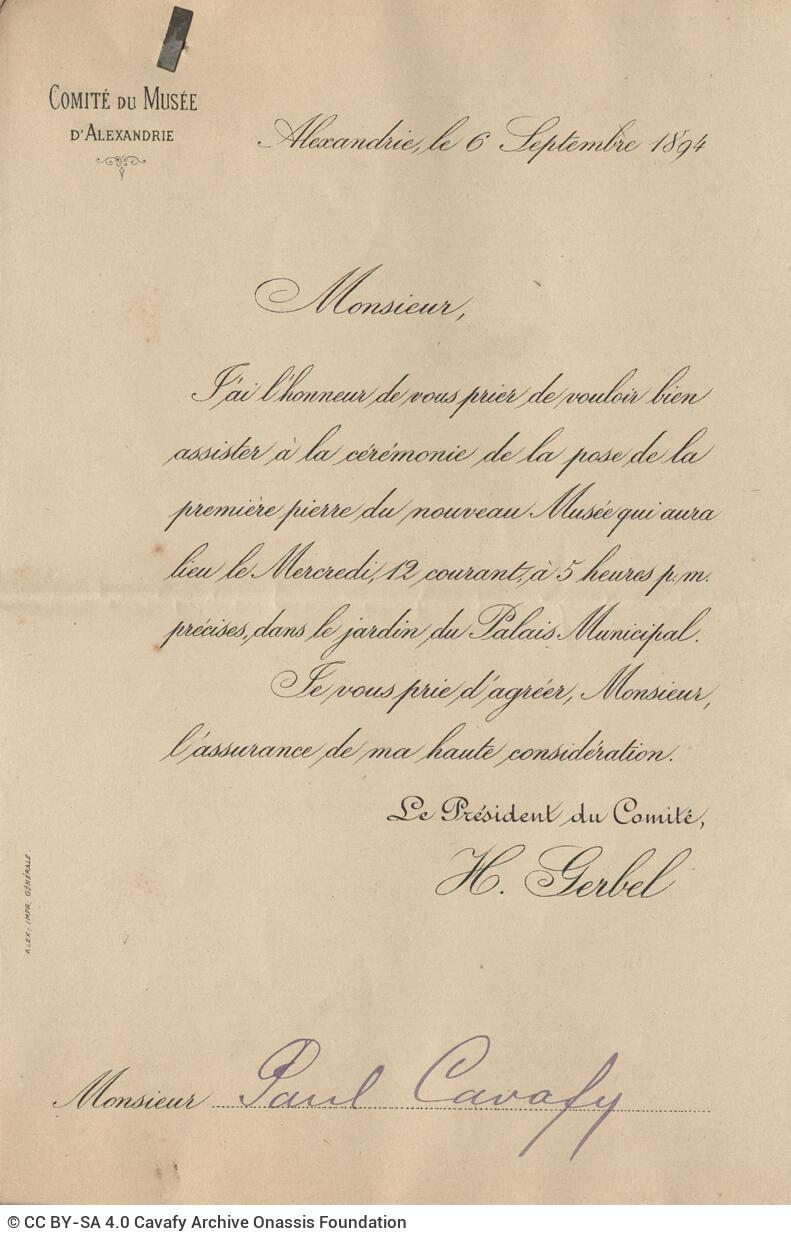 COMITÉ DU MUSÉE
D'ALEXANDRIE
Alexandrie, le 6 Septembre 1894
Monsieur,
J'ai l'honneur de vous prier de vouloir bien
assister à la cérémonie de la pose de la
première pierre du nouveau Musée qui aura
lieu le Mercredi, 12 courant, à 5 heures p.m.
précises, dans le jardin du Palais Municipal.
Je vous prie d'agréer, Monsieur,
l'assurance de ma haute considération.
Le Président du Comité,
H. Gerbel
ALEX. IMPR. GÉNÉRALE.
Monsieur Paul Cavafy
© CC BY-SA 4.0 Cavafy Archive Onassis Foundation